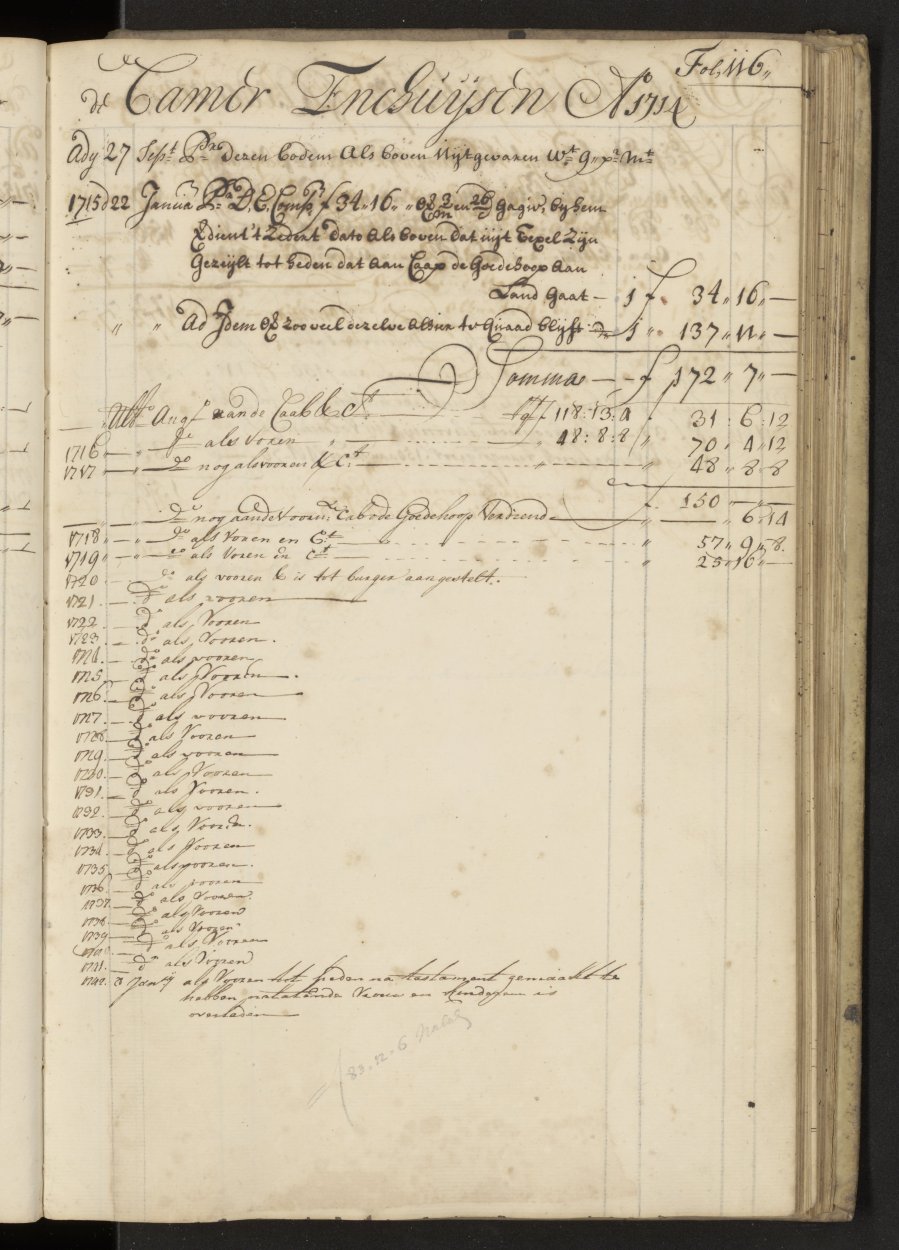 Fol: 116,,
de Camer Enchuijsen Ao 1714
Ady 27 Sept. Dezen bodem Als boven Uijtgevaren Wt 9,, pr. Mt
1715 d 22 Janua D, E, Comp f 34,, 16,, 3 m en 26 gagie, by hem
Verdient 't Zedert dato Als boven dat uijt Texel Zijn
Gezeijlt tot heden dat Aan Caap de Goedehoop Aan
Land Gaat — 1 f 34,, 16,, —
,, ,, Ad Idem zooveel dezelve Alhier te Quaad blijft — 1 ,, 137,, 11,, —
Somma — f 172,, 7,, —
Ulto Augo aande Caab & Ct f 118:13:9 / 31:6:12
1716 ,, do als voren ,, 48:8:8 / 70,, 4,, 12
1717 ,, do nog als vooren & Ct ,, 48,, 8,, 8
f 150 — —
,, ,, do nog aande voorn. Cabo de Goedehoop Verdiend ,, — ,, 6:14
1718 ,, ,, do als voren en Ct ,, 57,, 9,, 8
1719 ,, ,, do als voren en Ct ,, 25,, 16,, —
1720 do als vooren & is tot burger aangestelt.
1721 — do als vooren
1722 — do als Vooren
1723 — do als Vooren.
1724 — do als vooren
1725 — do als Vooren.
1726 — do als Vooren
1727 — do als vooren
1728 — do als Vooren
1729 — do als vooren
1730 — do als Vooren
1731 — do als Vooren.
1732 — do als vooren
1733 — do als Vooren.
1734 — do als Vooren
1735 — do als vooren.
1736 — do als vooren
1737 — do als Vooren.
1738 — do als Vooren
1739 — do als Vooren
1740 — do als Vooren
1741 — do als Vooren
1742 3 Janry als Vooren tot heden na testament gemaakt te
hebben nalatende Vrouw en kinderen is
overleden
f 83,, 12,, 6